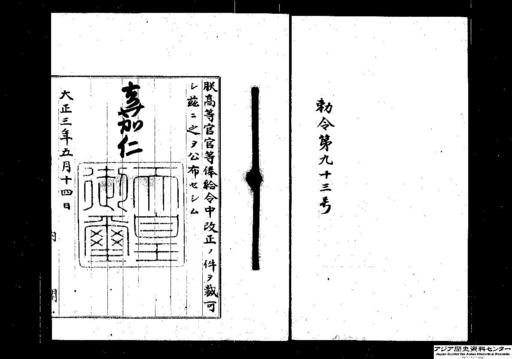 勅令第九十三号
朕高等官官等俸給令中改正ノ件ヲ裁可
シ茲ニ之ヲ公布セシム
嘉仁
天皇御璽
大正三年五月十四日
内 閣
アジア歴史資料センター
Japan Center for Asian Historical Records